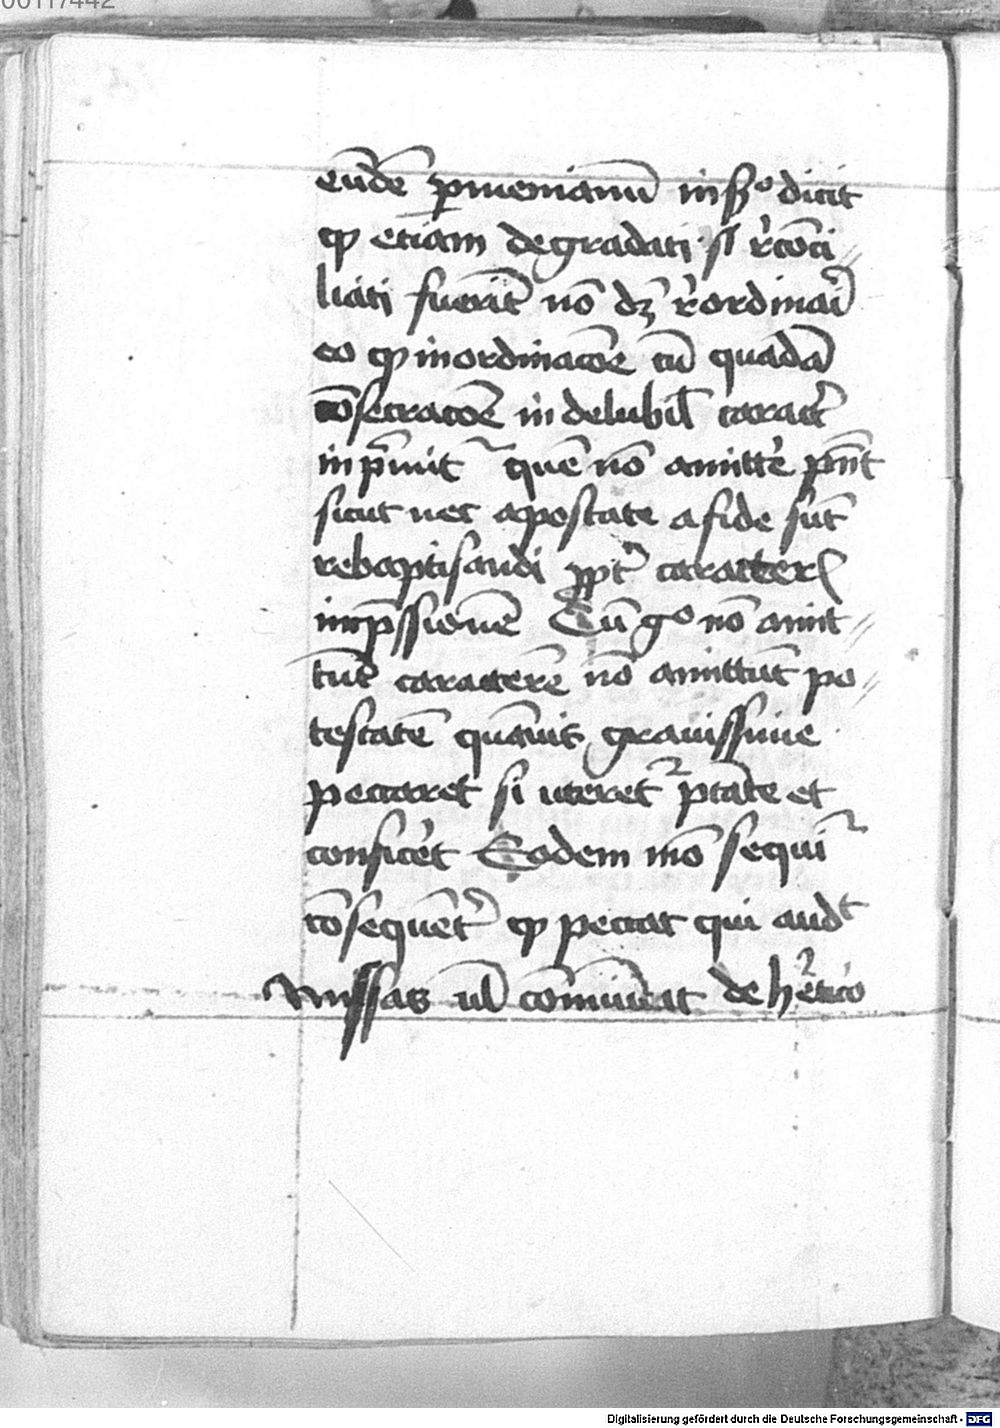 00117442
eūdē ꝑmenianū in fi° dicit
ꝙ etiam degradati si r̉cōci
liati fuerīt nō dꝫ r̉ordinai᷑
eo ꝙ in ordinacōe cū quadā
cōsecracōe in delubil̄ caract̉
in p̄mit᷑ quē nō amitte᷑ pn̄t
sicut nec apostate a fide sūt
rebaptisandi ꝓpt̉ caracterꝭ
imp̄ssionē Cū g° nō amit
tūt caracterē nō amittūt po
testatē quāuis grauissime
peccaret si uteret᷑ ptāte et
confice᷑t Eodem mō sequi᷑
cōsequēt̉ ꝙ peccat qui audᵗ
missas ul̄ cōmūicat de he᷑tico
Digitalisierung gefördert durch die Deutsche Forschungsgemeinschaft - DFG